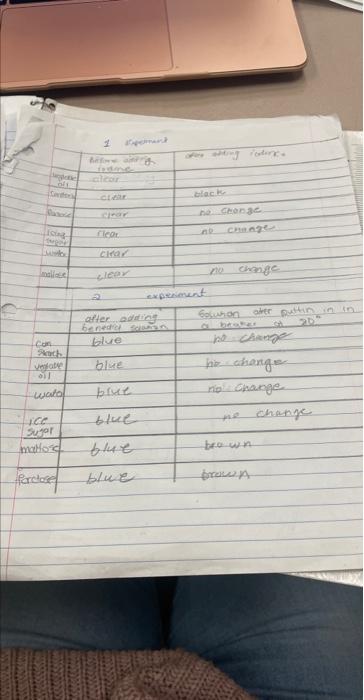 1 Experiment
before adding iodine
after adding iodine
vegtable oil clear
clear black
clear no change
Icing sugar clear no change
water clear
maltose clear no change
2 experiment
after adding benedict solution
Solution after puttin in in a beaker at 80°
Con Starch blue no change
vegtable oil blue no change
wato blue no change
ICE Sugar blue no change
maltose blue brown
blue brown